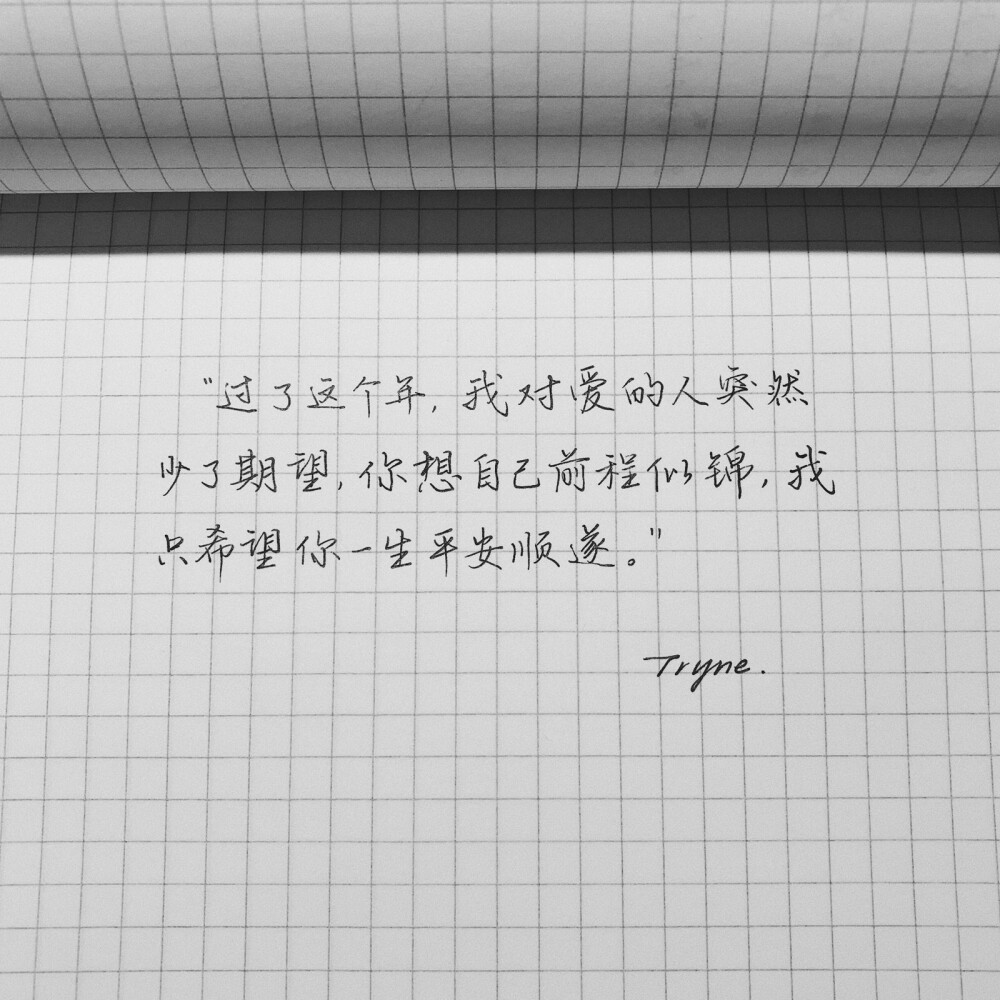 “过了这个年,我对爱的人突然
少了期望,你想自己前程似锦,我
只希望你一生平安顺遂。”
Tryne.